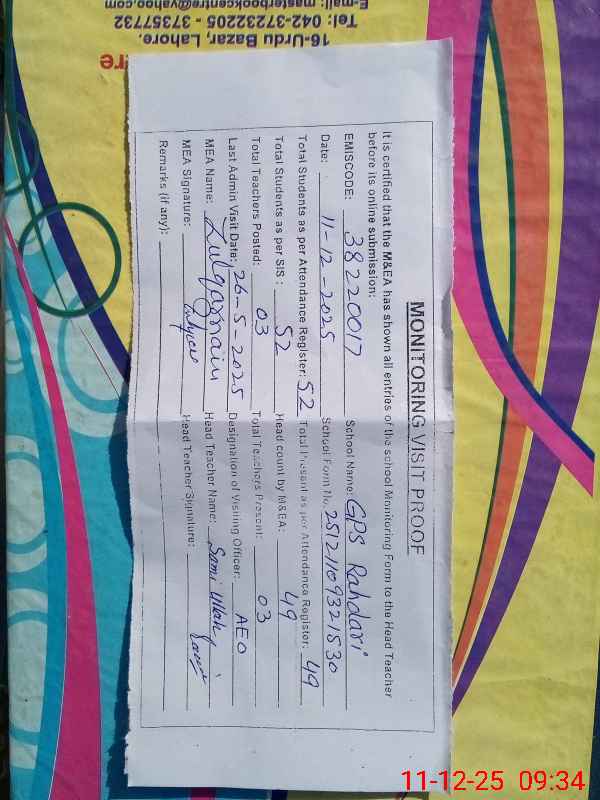 MONITORING VISIT PROOF
It is certified that the M&EA has shown all entries of the school Monitoring Form to the Head Teacher
before its online submission:
EMISCODE: 38220017 School Name: GPS Rahdari
Date: 11-12-2025 School Form No. 25121109321530
Total Students as per Attendance Register: 52 Total Present as per Attendance Register: 49
Total Students as per SIS : 52 Head count by M&EA: 49
Total Teachers Posted: 03 Total Teachers Present: 03
Last Admin Visit Date: 26-5-2025 Designation of Visiting Officer: AEO
MEA Name: Zulqarnain Head Teacher Name: Sami Ullah
MEA Signature: Head Teacher Signature:
Remarks (if any):
re
16-Urdu Bazar, Lahore.
Tel: 042-37232205 - 37357732
E-mail: masterbookcentre@yahoo.com
11-12-25 09:34